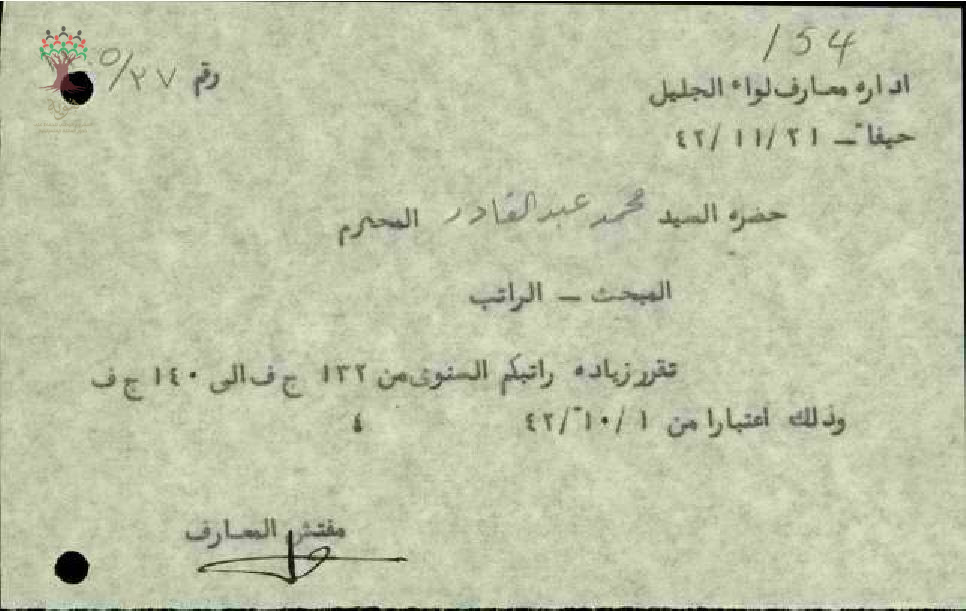 154
رقم ٥/٢٧
اداره معارف لواء الجليل
حيفا – ٤٢/١١/٢١
حضره السيد محمد عبد القادر المحترم
المبحث – الراتب
تقرر زياده راتبكم السنوى من ١٣٢ ج ف الى ١٤٠ ج ف
وذلك اعتبارا من ٤٢/١٠/١
مفتش المعارف